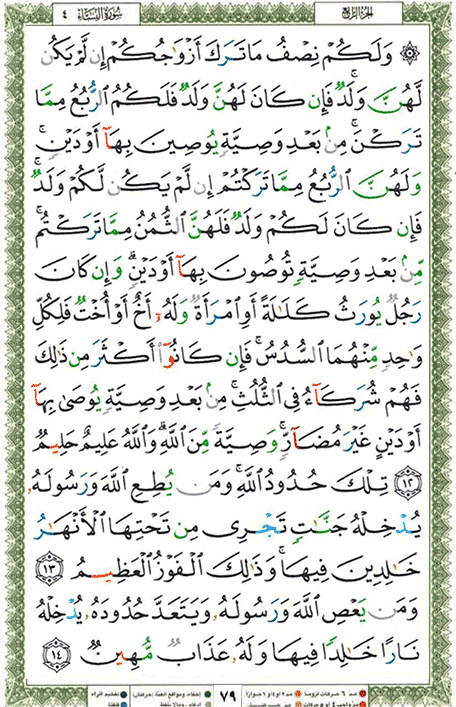 الجزء الرابع سورة النساء ٤
۞ وَلَكُمْ نِصْفُ مَا تَرَكَ أَزْوَٰجُكُمْ إِن لَّمْ يَكُن
لَّهُنَّ وَلَدٌ ۚ فَإِن كَانَ لَهُنَّ وَلَدٌ فَلَكُمُ ٱلرُّبُعُ مِمَّا
تَرَكْنَ ۚ مِنۢ بَعْدِ وَصِيَّةٍ يُوصِينَ بِهَآ أَوْ دَيْنٍ ۚ
وَلَهُنَّ ٱلرُّبُعُ مِمَّا تَرَكْتُمْ إِن لَّمْ يَكُن لَّكُمْ وَلَدٌ ۚ
فَإِن كَانَ لَكُمْ وَلَدٌ فَلَهُنَّ ٱلثُّمُنُ مِمَّا تَرَكْتُم ۚ
مِّنۢ بَعْدِ وَصِيَّةٍ تُوصُونَ بِهَآ أَوْ دَيْنٍ ۗ وَإِن كَانَ
رَجُلٌ يُورَثُ كَلَٰلَةً أَوِ ٱمْرَأَةٌ وَلَهُۥٓ أَخٌ أَوْ أُخْتٌ فَلِكُلِّ
وَٰحِدٍ مِّنْهُمَا ٱلسُّدُسُ ۚ فَإِن كَانُوٓا۟ أَكْثَرَ مِن ذَٰلِكَ
فَهُمْ شُرَكَآءُ فِى ٱلثُّلُثِ ۚ مِنۢ بَعْدِ وَصِيَّةٍ يُوصَىٰ بِهَآ
أَوْ دَيْنٍ غَيْرَ مُضَآرٍّ ۚ وَصِيَّةً مِّنَ ٱللَّهِ ۗ وَٱللَّهُ عَلِيمٌ حَلِيمٌ
١٢ تِلْكَ حُدُودُ ٱللَّهِ ۚ وَمَن يُطِعِ ٱللَّهَ وَرَسُولَهُۥ
يُدْخِلْهُ جَنَّٰتٍ تَجْرِى مِن تَحْتِهَا ٱلْأَنْهَٰرُ
خَٰلِدِينَ فِيهَا ۚ وَذَٰلِكَ ٱلْفَوْزُ ٱلْعَظِيمُ ١٣
وَمَن يَعْصِ ٱللَّهَ وَرَسُولَهُۥ وَيَتَعَدَّ حُدُودَهُۥ يُدْخِلْهُ
نَارًا خَٰلِدًا فِيهَا وَلَهُۥ عَذَابٌ مُّهِينٌ ١٤
٧٩